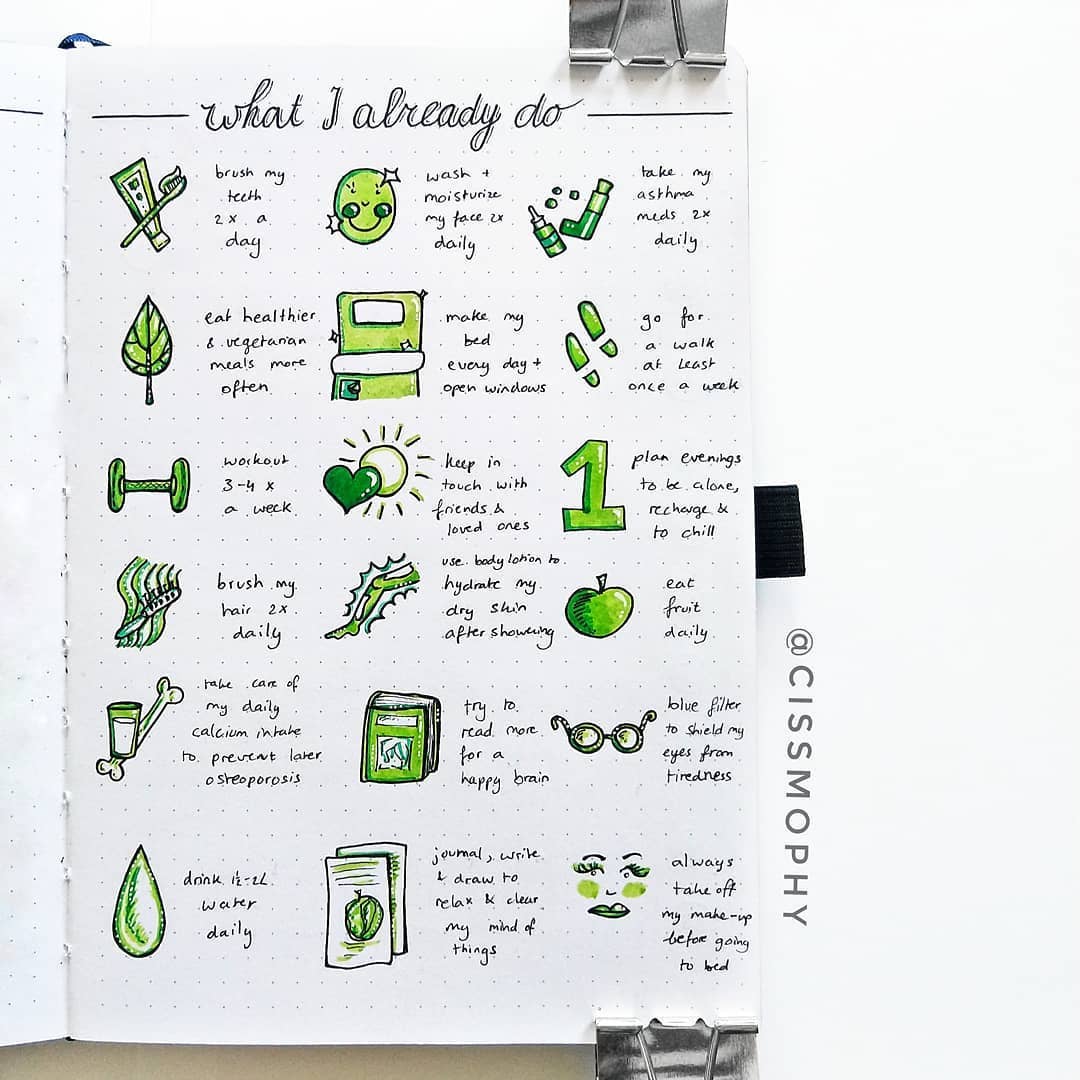 what I already do
brush my
teeth
2x a
day
wash +
moisturize
my face 2x
daily
take my
asthma
meds 2x
daily
eat healthier
& vegetarian
meals more
often
make my
bed
every day +
open windows
go for
a walk
at least
once a week
workout
3-4 x
a week
keep in
touch with
friends &
loved ones
plan evenings
to be alone,
recharge &
to chill
1
brush my
hair 2x
daily
use body lotion to
hydrate my
dry skin
after showering
eat
fruit
daily
take care of
my daily
calcium intake
to prevent later
osteoporosis
try to
read more
for a
happy brain
blue filter
to shield my
eyes from
tiredness
drink 1½-2L
water
daily
journal, write
& draw to
relax & clear
my mind of
things
always
take off
my make-up
before going
to bed
@CISSMOPHY